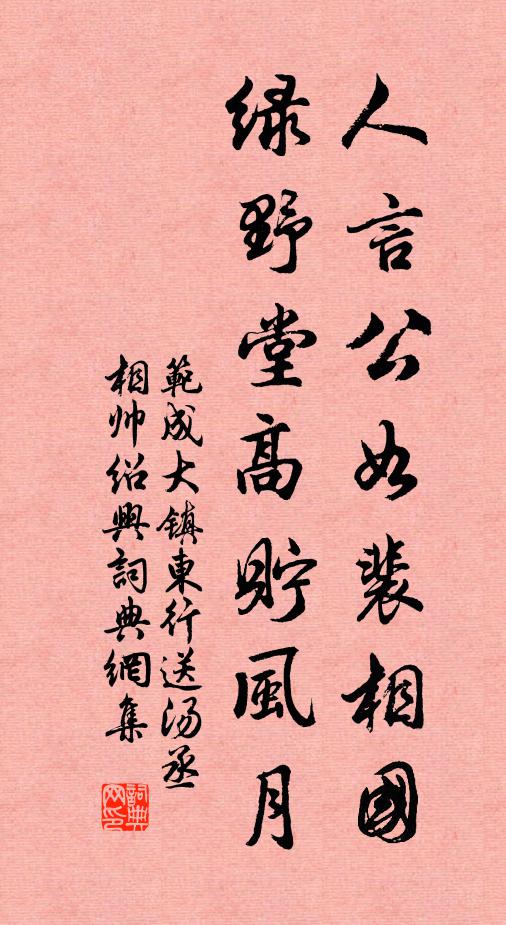 人言公如裴相國
绿野堂高貯風月
範成大镇東行送汤丞
相帅绍興詞典網集
詞典网印